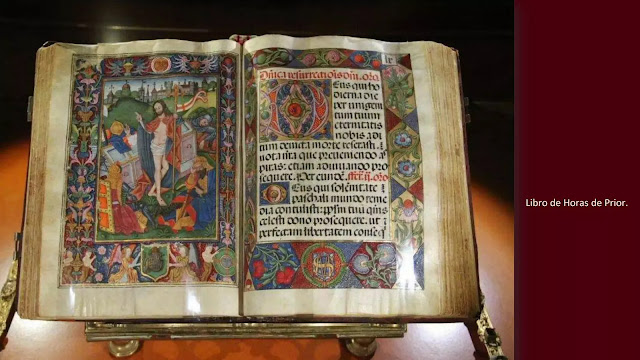 Dñica resurrectiõis dñi. oro
Deus qui ho
dierna die
per unigeni
tum tuum
eternitatis
nobis adi
tum deuicta morte reserasti:
uota nr̃a que preueniendo a
spiras: etiam adiuuando pro
sequere. Per eundẽ. oro
Deus qui solemnitate
paschali mundo reme
dia contulisti: tuũ
celesti dono prosequere. ut
perfectam libertatem conseq
Libro de Horas de Prior.